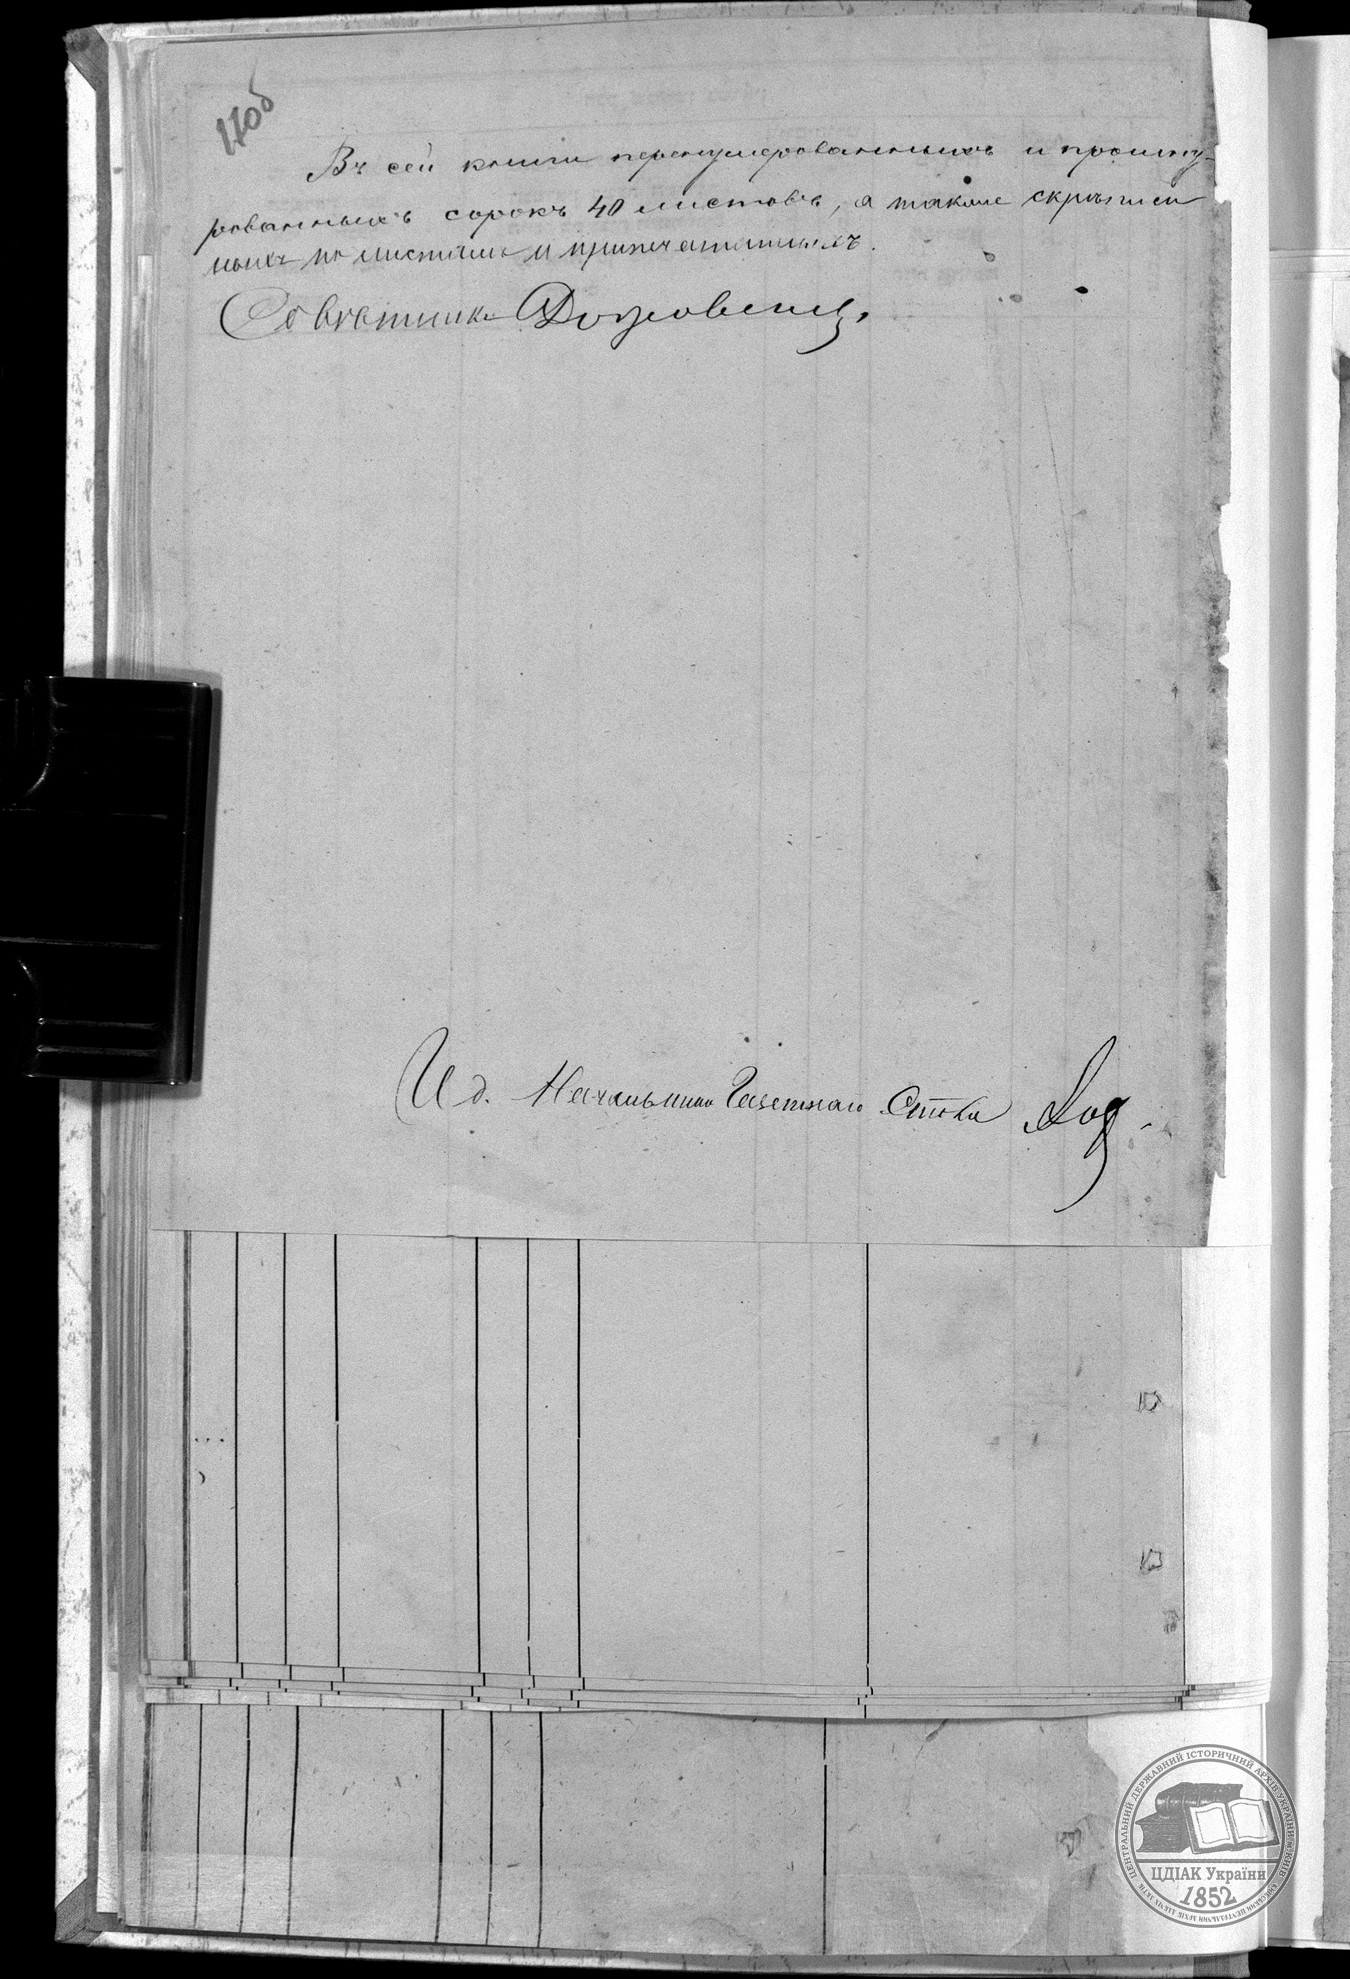 170б
Въ сей книги перенумерованныхъ и прошну-
рованныхъ сорокъ 40 листовъ, а также скрѣплен
ныхъ по листамъ и припечатанныхъ.
Совѣтникъ
И д. Начальника Газетнаго Стола
ЦЕНТРАЛЬНИЙ ДЕРЖАВНИЙ ІСТОРИЧНИЙ АРХІВ УКРАЇНИ М.КИЇВ
ЦДІАК України
1852